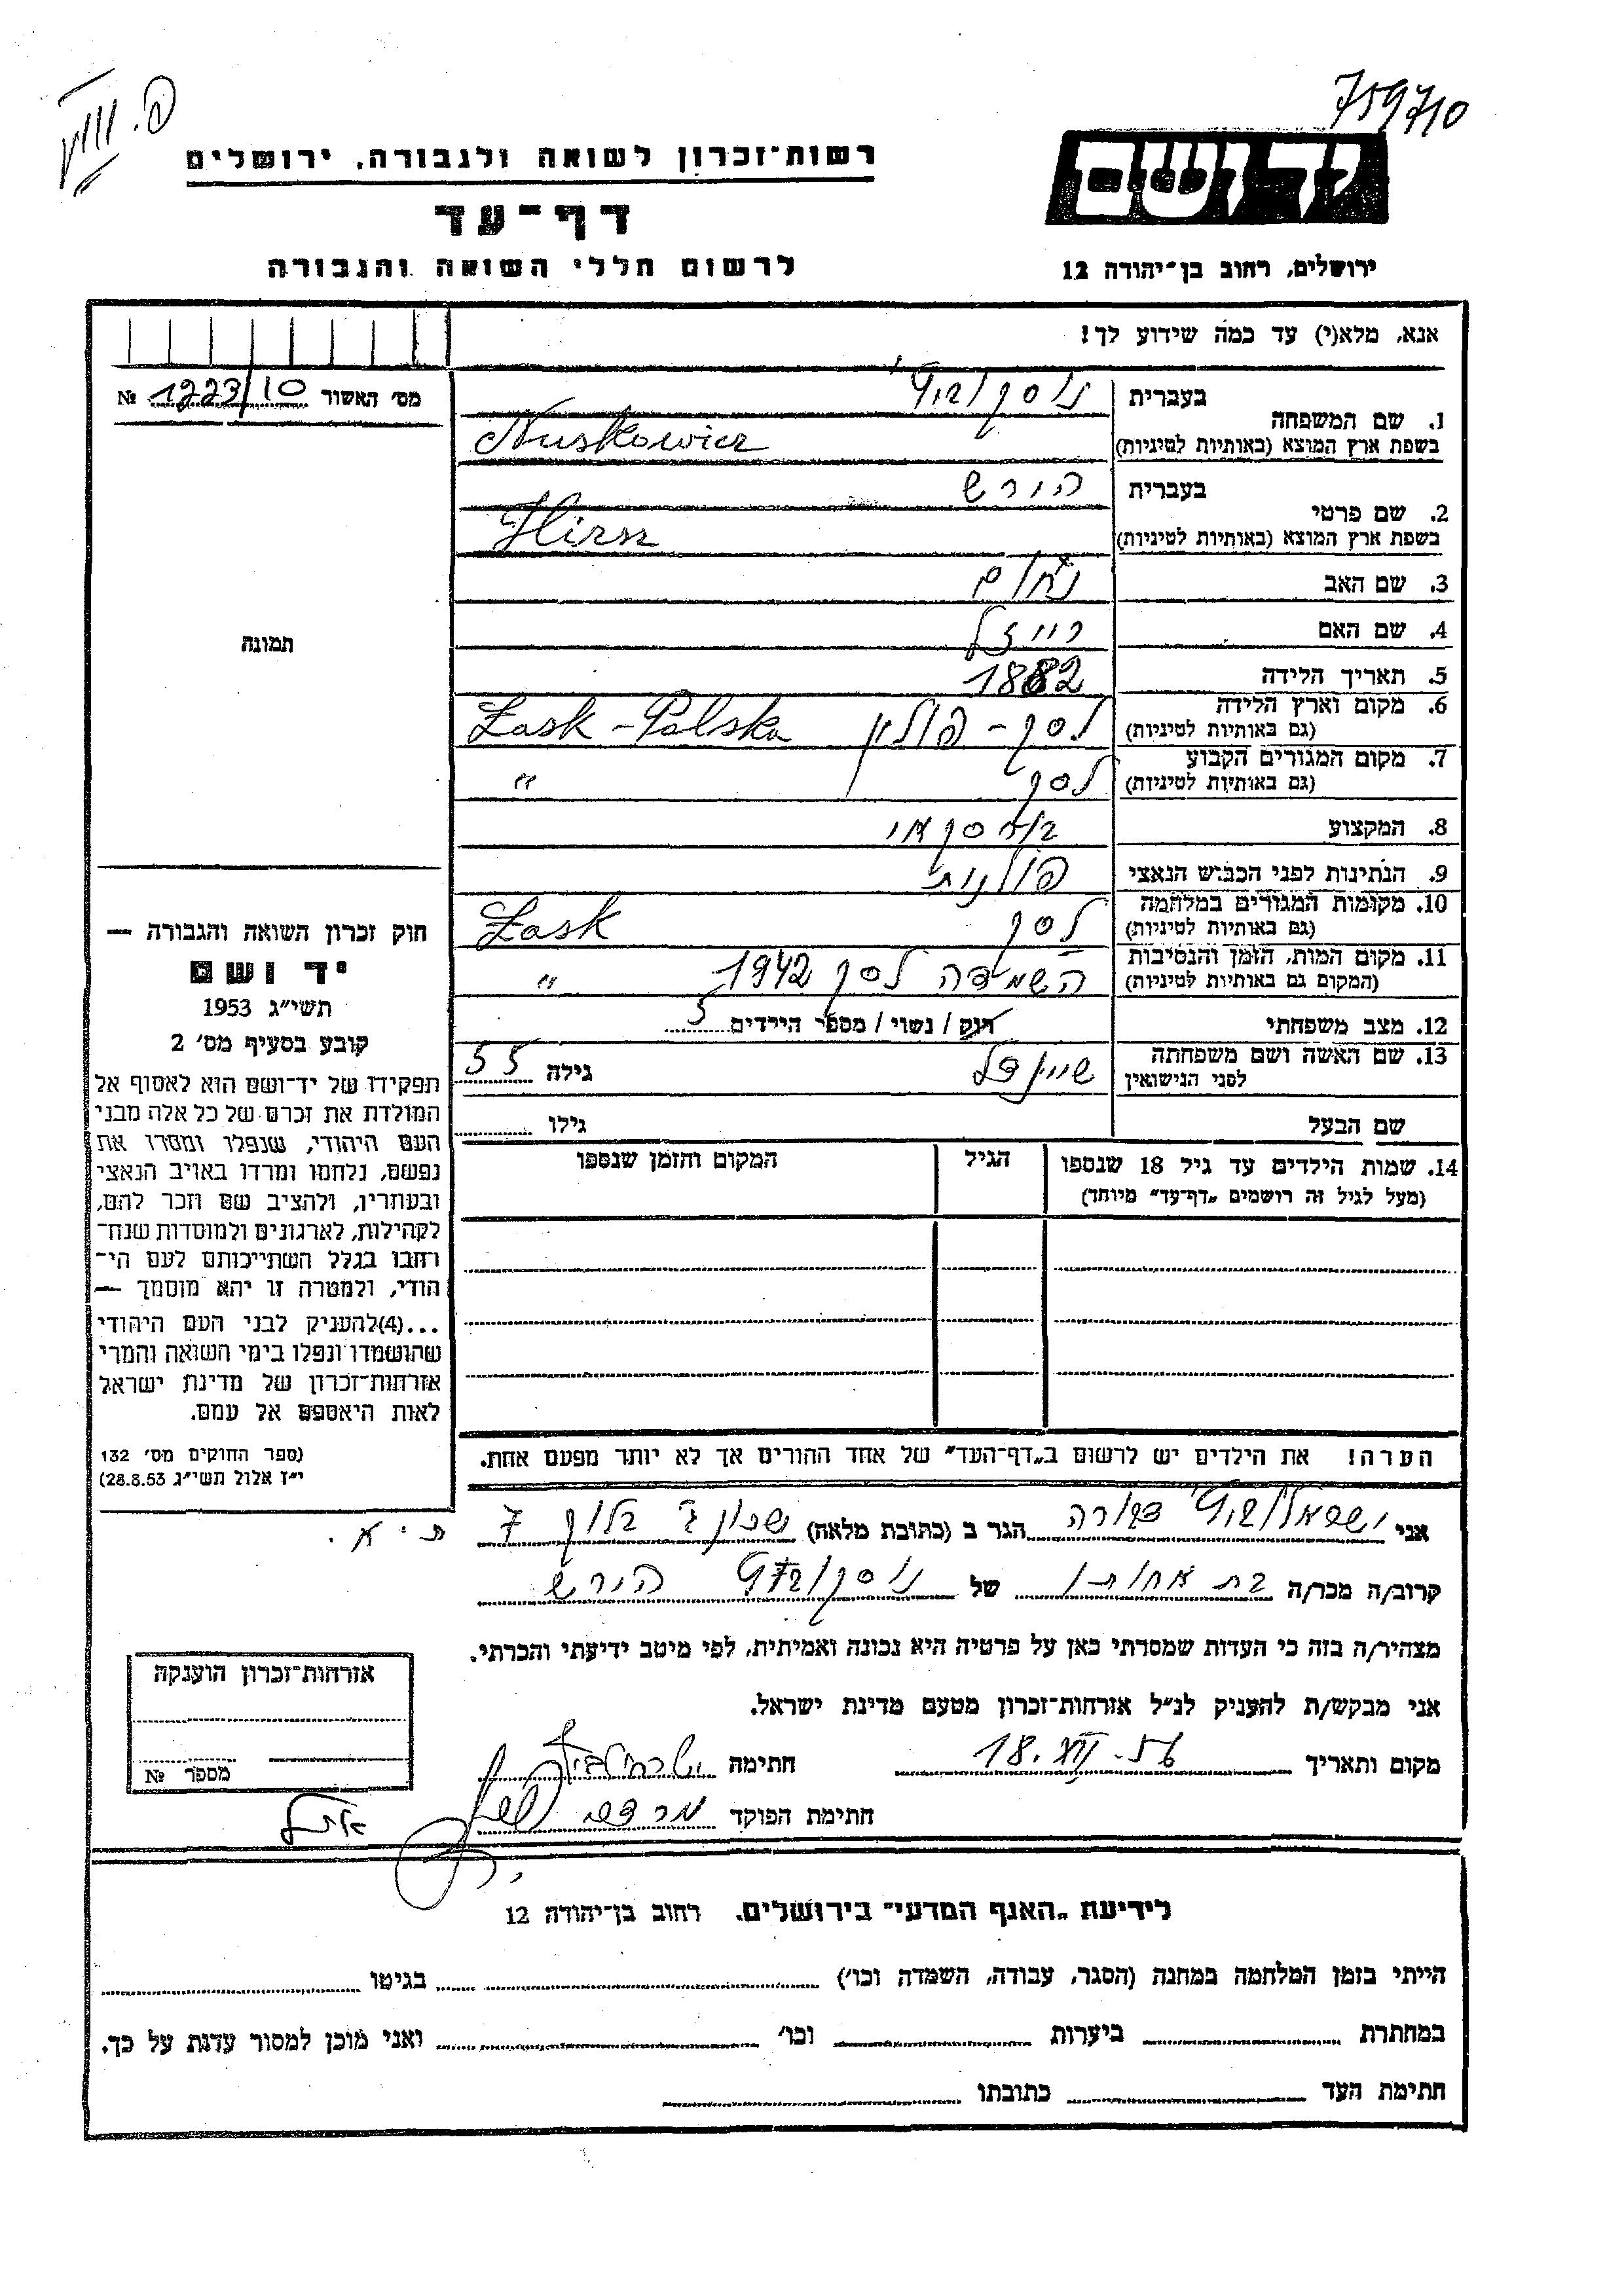 759710
יד ושם
רשות־זכרון לשואה ולגבורה, ירושלים
דף־עד
לרשום חללי השואה והגבורה
ירושלים, רחוב בן־יהודה 12
אנא, מלא(י) עד כמה שידוע לך!
מס׳ האשור 1223/10 №
תמונה
חוק זכרון השואה והגבורה —
יד ושם
תשי״ג 1953
קובע בסעיף מס׳ 2
תפקידו של יד־ושם הוא לאסוף אל
המולדת את זכרם של כל אלה מבני
העם היהודי, שנפלו ומסרו את
נפשם, נלחמו ומרדו באויב הנאצי
ובעוזריו, ולהציב שם וזכר להם,
לקהילות, לארגונים ולמוסדות שנח־
רחבו בגלל השתייכותם לעם הי־
הודי, ולמטרה זו יהא מוסמך —
...(4)להעניק לבני העם היהודי
שהושמדו ונפלו בימי השואה והמרי
אזרחות־זכרון של מדינת ישראל
לאות היאספם אל עמם.
(ספר החוקים מס׳ 132
י״ז אלול תשי״ג 28.8.53)
1. שם המשפחה
בעברית נוסקוביץ׳
בשפת ארץ המוצא (באותיות לטיניות) Nuskowicz
2. שם פרטי
בעברית הירש
בשפת ארץ המוצא (באותיות לטיניות) Hirsz
3. שם האב נחום
4. שם האם רייזל
5. תאריך הלידה 1882
6. מקום וארץ הלידה לסק - פולין Łask - Polska
(גם באותיות לטיניות)
7. מקום המגורים הקבוע לסק "
(גם באותיות לטיניות)
8. המקצוע
9. הנתינות לפני הכבוש הנאצי פולנית
10. מקומות המגורים במלחמה לסק Łask
(גם באותיות לטיניות)
11. מקום המות, הזמן והנסיבות השמדה לסק 1942 "
(המקום גם באותיות לטיניות)
12. מצב משפחתי רוק / נשוי / מספר הילדים 5
13. שם האשה ושם משפחתה שיינדל גילה 55
לפני הנישואין
שם הבעל גילו
14. שמות הילדים עד גיל 18 שנספו הגיל המקום והזמן שנספו
(מעל לגיל זה רושמים „דף־עד״ מיוחד)
הערה! את הילדים יש לרשום ב„דף־העד״ של אחד ההורים אך לא יותר מפעם אחת.
אני דבורה הגר ב (כתובת מלאה) שכון ג׳ בלוק 7 ת״א.
קרוב/ה מכר/ה בת אחותו של נוסקוביץ הירש
מצהיר/ה בזה כי העדות שמסרתי כאן על פרטיה היא נכונה ואמיתית, לפי מיטב ידיעתי והכרתי.
אני מבקש/ת להעניק לנ״ל אזרחות־זכרון מטעם מדינת ישראל.
מקום ותאריך 18.XII.56 חתימה
חתימת הפוקד
אזרחות־זכרון הוענקה
מספר №
לידיעת „האגף המדעי״ בירושלים, רחוב בן־יהודה 12
הייתי בזמן המלחמה במחנה (הסגר, עבודה, השמדה וכו׳) בגיטו
במחתרת ביערות וכו׳ ואני מוכן למסור עדות על כך.
חתימת העד כתובתו